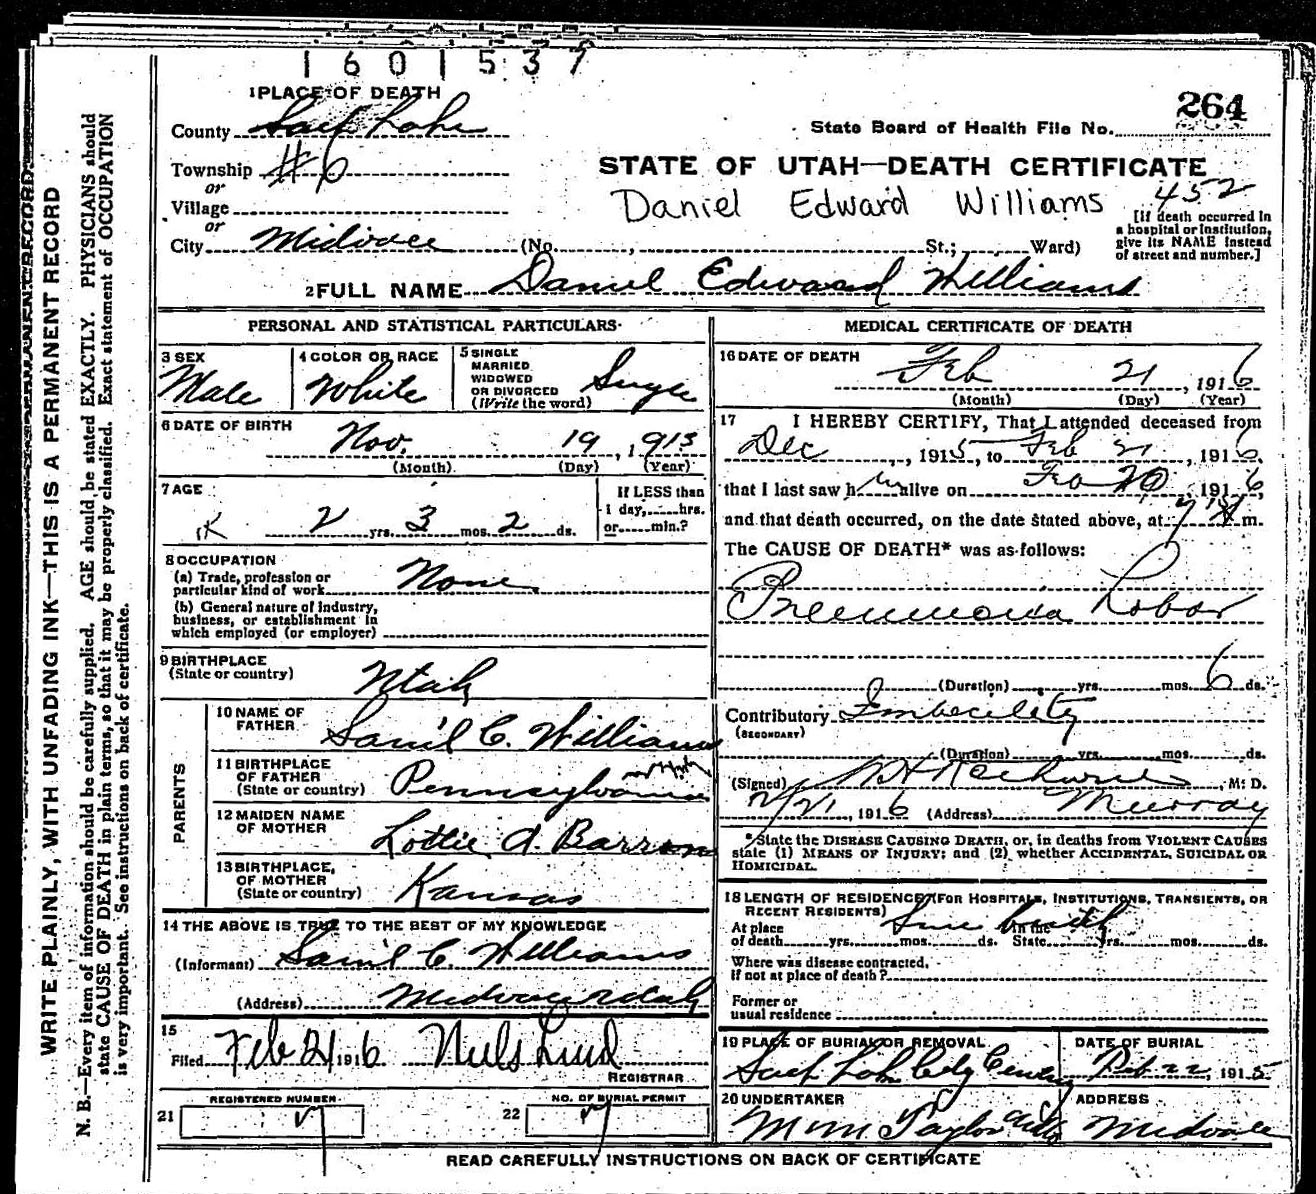 1601537
1 PLACE OF DEATH
264
County Salt Lake
State Board of Health File No.
Township #6
or
STATE OF UTAH—DEATH CERTIFICATE
Village
Daniel Edward Williams
452
or
City Midvale (No. , St.; Ward)
[If death occurred in
a hospital or institution,
give its NAME instead
of street and number.]
2 FULL NAME Daniel Edward Williams
PERSONAL AND STATISTICAL PARTICULARS
3 SEX
Male
4 COLOR OR RACE
White
5 SINGLE
MARRIED
WIDOWED
OR DIVORCED
(Write the word)
Single
6 DATE OF BIRTH
Nov. 19, 1913
(Month) (Day) (Year)
7 AGE
2 yrs. 3 mos. 2 ds.
If LESS than
1 day, hrs.
or min.?
8 OCCUPATION
(a) Trade, profession or
particular kind of work None
(b) General nature of industry,
business, or establishment in
which employed (or employer)
9 BIRTHPLACE
(State or country) Utah
PARENTS
10 NAME OF
FATHER Sam'l C. Williams
11 BIRTHPLACE
OF FATHER
(State or country) Pennsylvania
12 MAIDEN NAME
OF MOTHER Lottie A. Barron
13 BIRTHPLACE
OF MOTHER
(State or country) Kansas
14 THE ABOVE IS TRUE TO THE BEST OF MY KNOWLEDGE
(Informant) Sam'l C. Williams
(Address) Midvale Utah
15
Filed Feb 21 1916 Niels Lind
REGISTRAR
REGISTERED NUMBER
21
NO. OF BURIAL PERMIT
22
MEDICAL CERTIFICATE OF DEATH
16 DATE OF DEATH
Feb 21, 1916
(Month) (Day) (Year)
17 I HEREBY CERTIFY, That I attended deceased from
Dec , 1915, to Feb 21, 1916,
that I last saw him alive on Feb 20, 1916,
and that death occurred, on the date stated above, at 7 m.
The CAUSE OF DEATH* was as follows:
Pneumonia Lobar
(Duration) yrs. mos. 6 ds.
Contributory Imbecility
(SECONDARY)
(Duration) yrs. mos. ds.
(Signed) , M. D.
2/21, 1916 (Address) Murray
*State the DISEASE CAUSING DEATH, or, in deaths from VIOLENT CAUSES
state (1) MEANS OF INJURY; and (2) whether ACCIDENTAL, SUICIDAL OR
HOMICIDAL.
18 LENGTH OF RESIDENCE (FOR HOSPITALS, INSTITUTIONS, TRANSIENTS, OR
RECENT RESIDENTS)
Since birth
At place In the
of death yrs. mos. ds. State yrs. mos. ds.
Where was disease contracted,
if not at place of death?
Former or
usual residence
19 PLACE OF BURIAL OR REMOVAL
Salt Lake City Cemetry
DATE OF BURIAL
Feb 22, 1915
20 UNDERTAKER
Taylor
ADDRESS
Midvale
READ CAREFULLY INSTRUCTIONS ON BACK OF CERTIFICATE
WRITE PLAINLY, WITH UNFADING INK—THIS IS A PERMANENT RECORD
N. B.—Every item of information should be carefully supplied. AGE should be stated EXACTLY. PHYSICIANS should
state CAUSE OF DEATH in plain terms, so that it may be properly classified. Exact statement of OCCUPATION
is very important. See instructions on back of certificate.